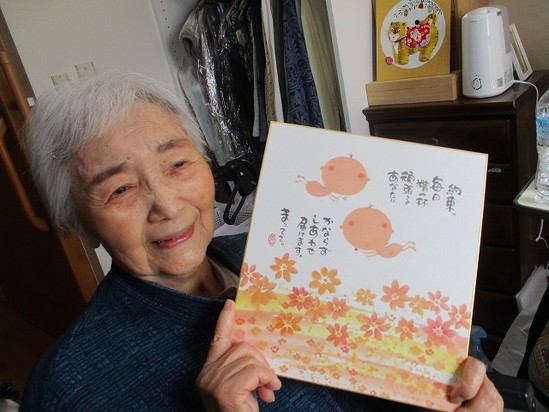 約束。
毎日
精一杯
頑張る
あなたに
かならず
しあわせ
届けます。
まっててっ。